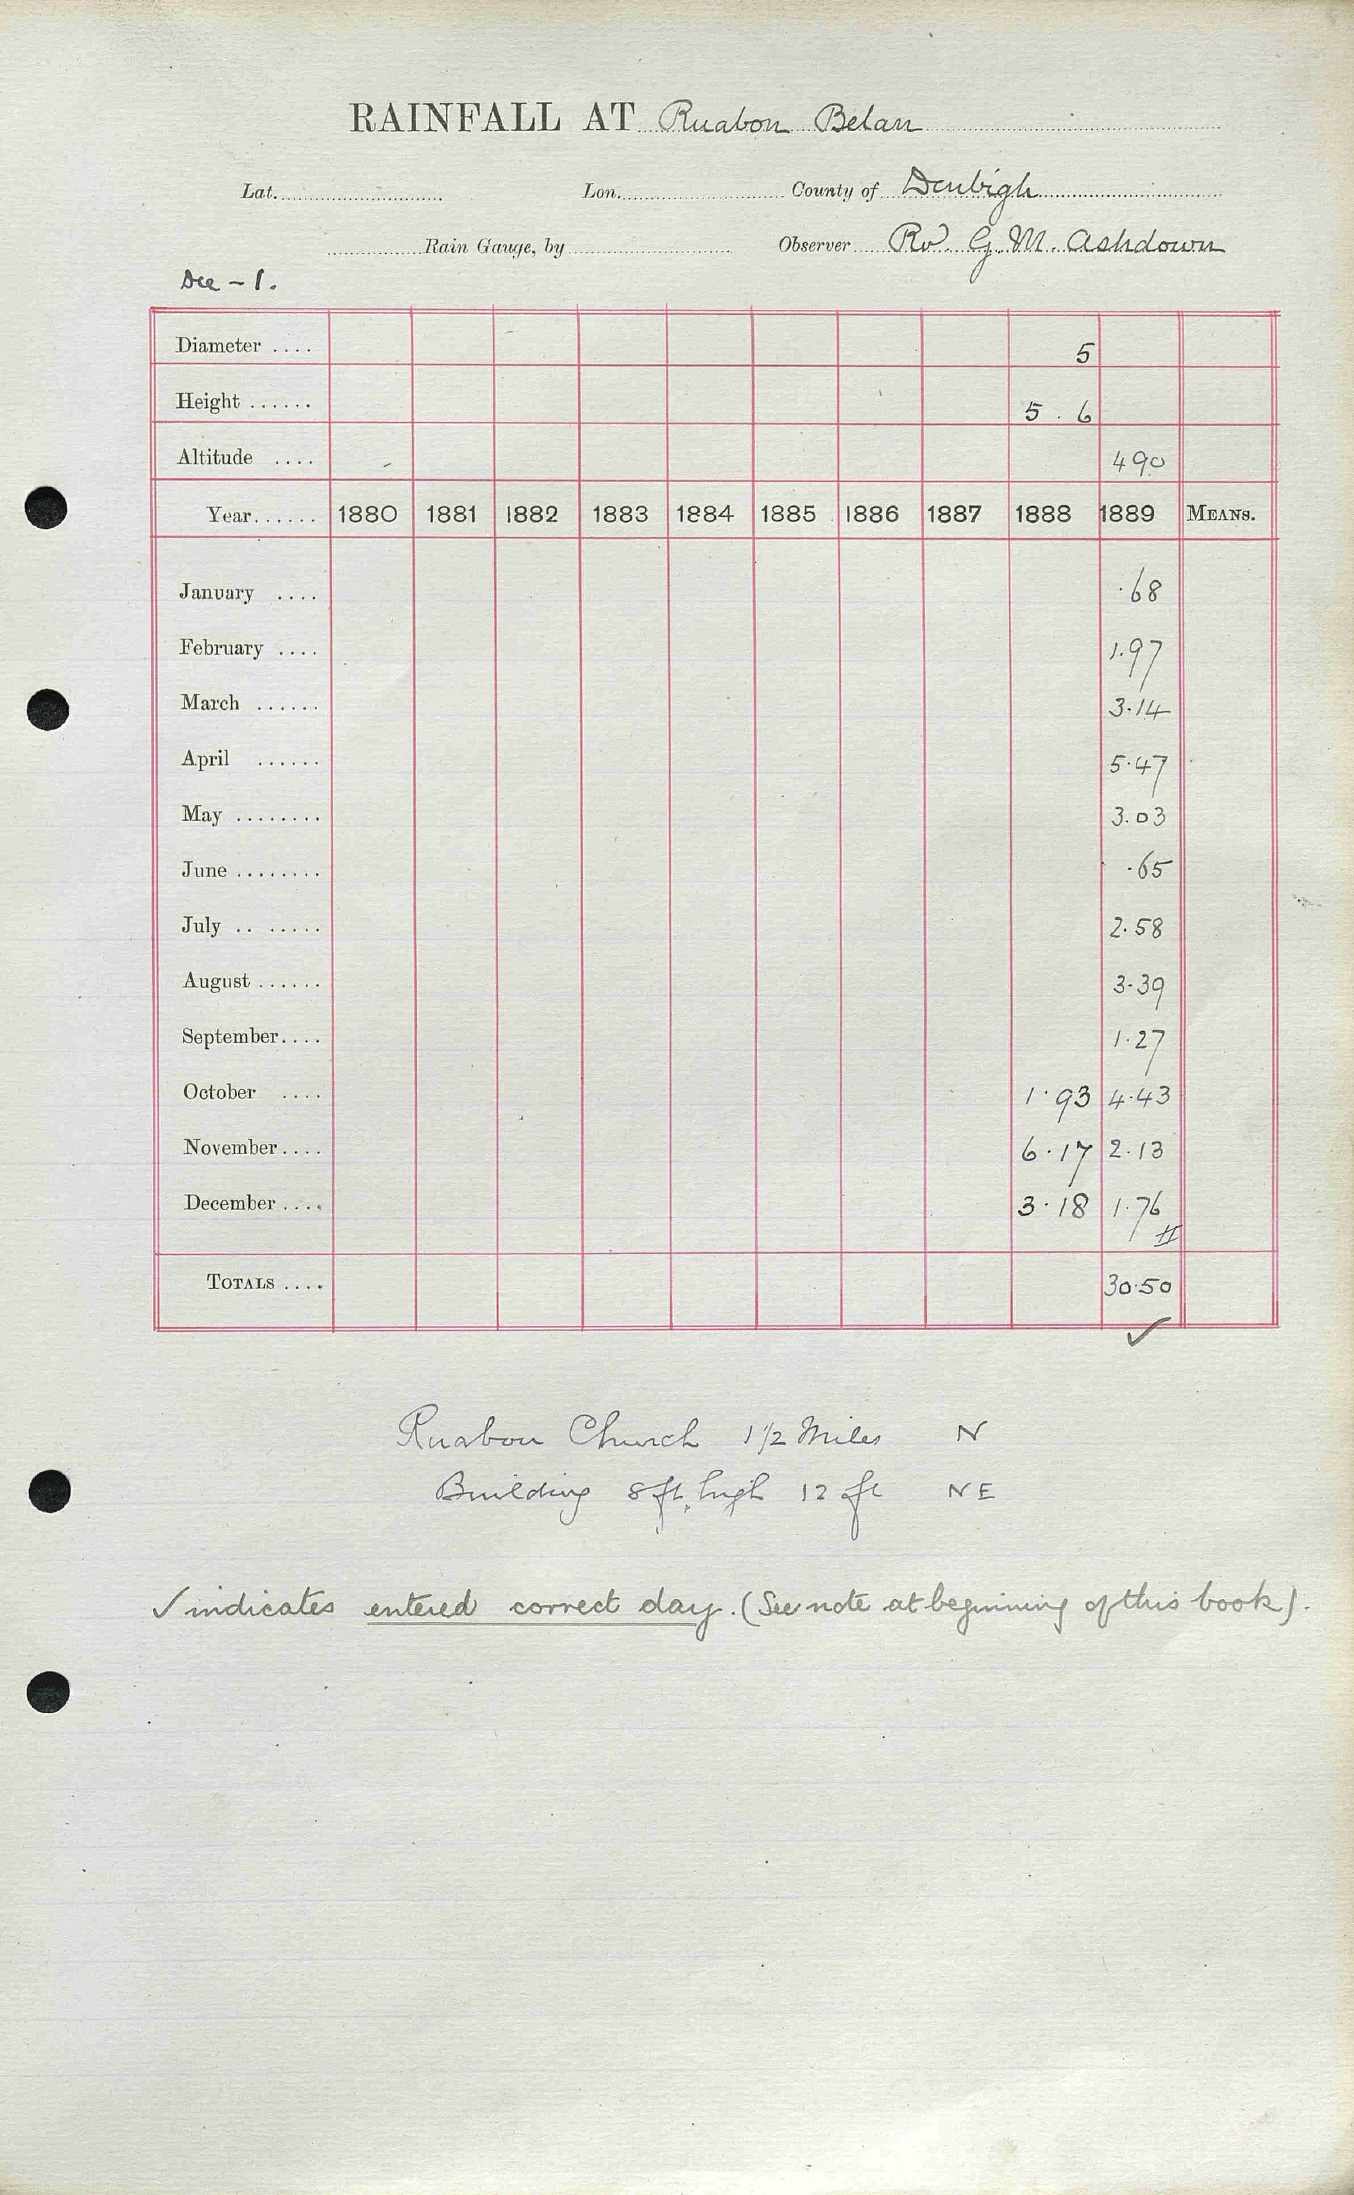 RAINFALL AT Ruabon Belan
Lat. Lon. County of Denbigh
Rain Gauge, by Observer Rv G M. Ashdown
Dee - 1.
Diameter .... 5
Height ...... 5 . 6
Altitude .... 490
Year...... 1880 1881 1882 1883 1884 1885 1886 1887 1888 1889 MEANS.
January .... .68
February .... 1.97
March ...... 3.14
April ...... 5.47
May ........ 3.03
June ........ .65
July .. ..... 2.58
August ...... 3.39
September.... 1.27
October .... 1.93 4.43
November.... 6.17 2.13
December .... 3.18 1.76
TOTALS .... 30.50
✓
Ruabon Church 1 1/2 Miles N
Building 8 ft. high 12 ft NE
✓ indicates entered correct day. (See note at beginning of this book).